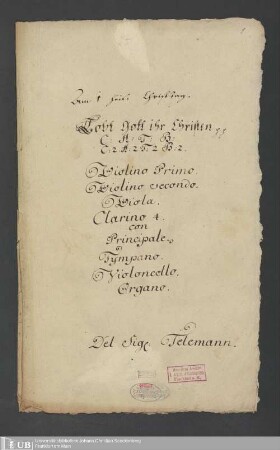 Am 1 heil: Christtag.
Lobt Gott ihr Christen
C. A. T. B.
C: 2 A: 2 T: 2 B: 2.
Violino Primo.
Violino secondo.
Viola.
Clarino 4.
con
Principale.
Tympano.
Violoncello.
Organo.
Del Sigr. Telemann.
UB
Universitätsbibliothek Johann Christian Senckenberg
Frankfurt am Main